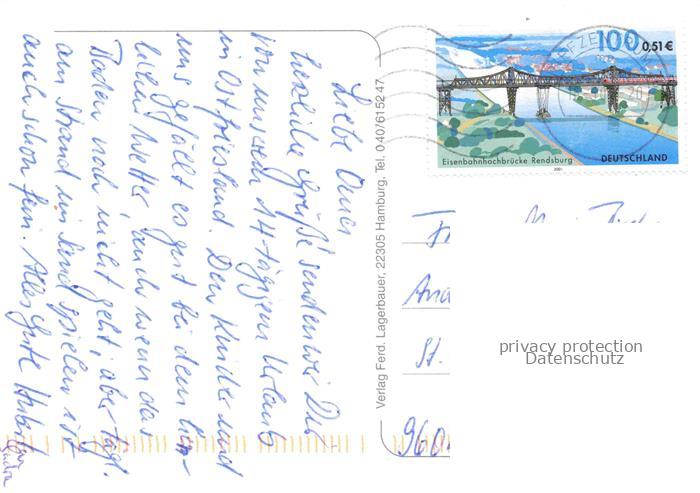 Liebe Omi
herzliche Grüße senden wir Dir
von unserem 14-tägigen Urlaub
in Ostfriesland. Den Kinder und
uns gefällt es gut bei dem
lichen Wetter, auch wenn das
Baden noch nicht geht, aber tägl.
am Strand im Sand spielen ist
auch schon fein. Alles Gute
Verlag Ferd. Lagerbauer, 22305 Hamburg, Tel. 040/6152 47
100 0,51 €
Eisenbahnhochbrücke Rendsburg DEUTSCHLAND
2001
Fr
St.
960
privacy protection
Datenschutz